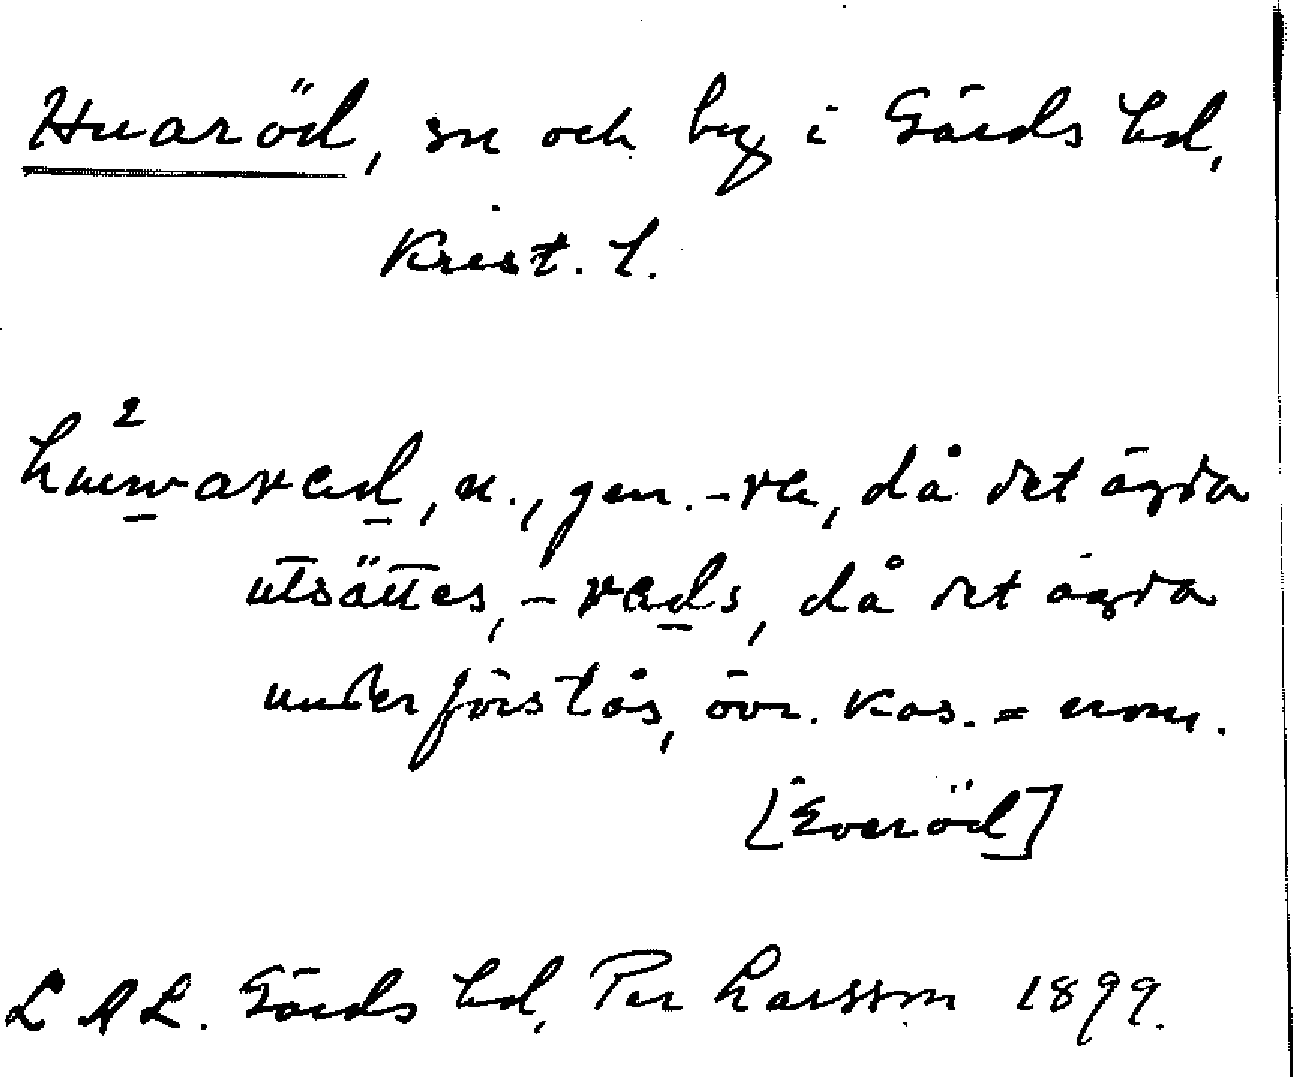 Huaröd, sn och by i Gärds hd,
Krist. l.
n., gen. -ra, då det ägda
utsättes, -rads, då det ägda
underförstås, övr. kas. = nom.
[Everöd]
L A L. Gärds hd, Per Larsson 1899.